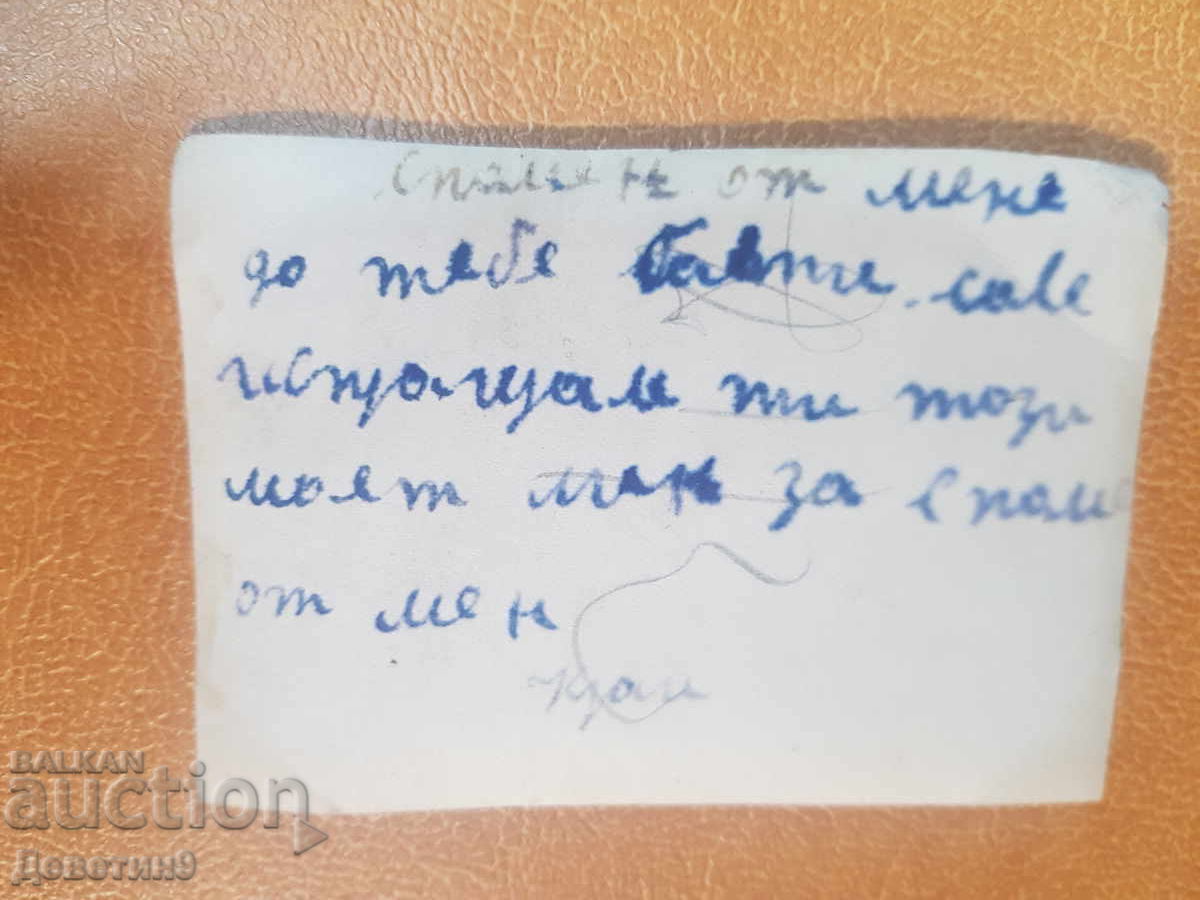 Спомен от мене
до тебе бае ти саве
испращам ти този
моят лик за спом
от мен
край
BALKAN
auction
Деветин9